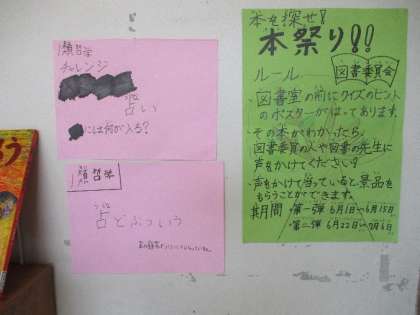 チャレンジ
占い
には何が入る?
占どぶつ
本を探せ!
本祭り!!
ルール
図書委員会
・図書室の前にクイズのヒント
のポスターがはってあります。
・その本がわかったら、
図書委員の人や図書の先生に
声をかけてください?
・声をかけて当っていると景品を
もらうことができます。
期間・第一弾 6月1日〜6月15日
・第二弾 6月22日〜7月6日